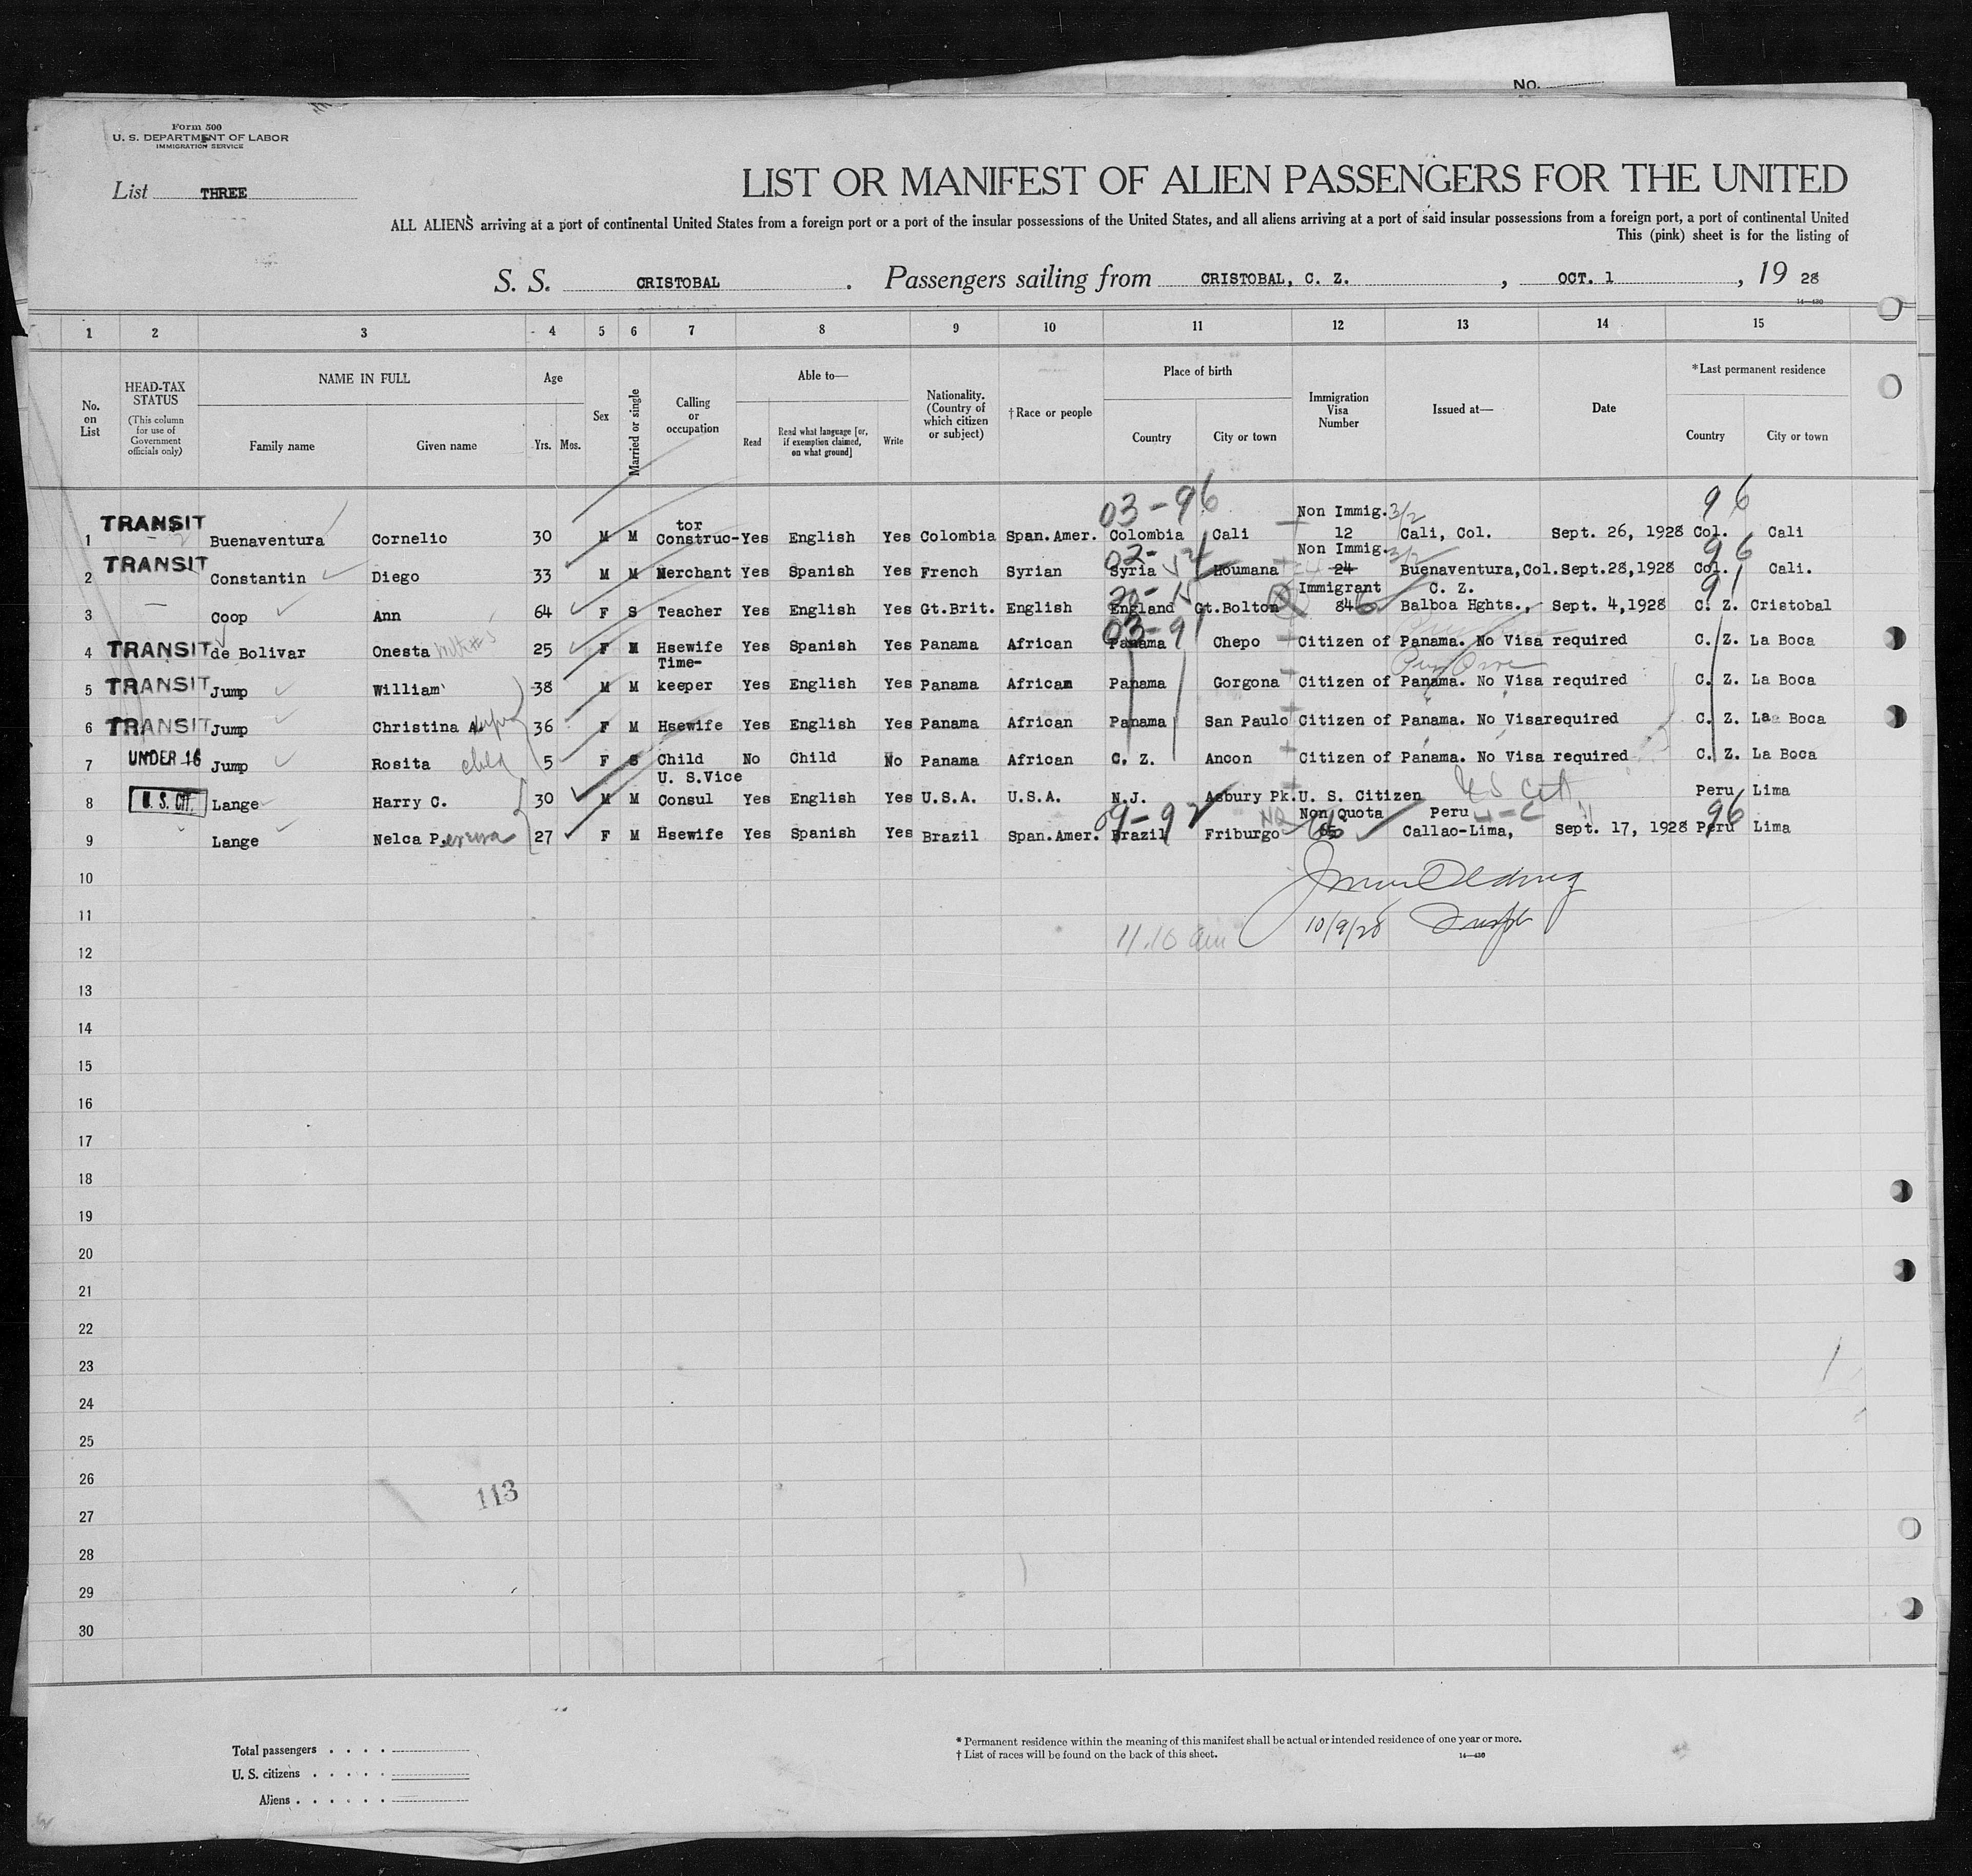 No.
Form 500
U. S. DEPARTMENT OF LABOR
IMMIGRATION SERVICE
List THREE
LIST OR MANIFEST OF ALIEN PASSENGERS FOR THE UNITED
ALL ALIENS arriving at a port of continental United States from a foreign port or a port of the insular possessions of the United States, and all aliens arriving at a port of said insular possessions from a foreign port, a port of continental United
This (pink) sheet is for the listing of
S. S. CRISTOBAL . Passengers sailing from CRISTOBAL, C. Z. , OCT. 1 , 19 28
14—430
1 2 3 4 5 6 7 8 9 10 11 12 13 14 15
No. on List
HEAD-TAX STATUS (This column for use of Government officials only)
NAME IN FULL Family name Given name
Age Yrs. Mos.
Sex
Married or single
Calling or occupation
Able to— Read Read what language [or, if exemption claimed, on what ground] Write
Nationality. (Country of which citizen or subject)
†Race or people
Place of birth Country City or town
Immigration Visa Number
Issued at—
Date
*Last permanent residence Country City or town
03-96 Non Immig. 3/2 96
1 TRANSIT Buenaventura Cornelio 30 M M Construc-tor Yes English Yes Colombia Span.Amer. Colombia Cali 12 Cali, Col. Sept. 26, 1928 Col. Cali
02- 54 Non Immig. 3/2 96
2 TRANSIT Constantin Diego 33 M M Merchant Yes Spanish Yes French Syrian Syria Houmana 24 Buenaventura,Col. Sept.28,1928 Col. Cali.
20-15 Immigrant C. Z. 91
3 Coop Ann 64 F S Teacher Yes English Yes Gt.Brit. English England Gt.Bolton 846 Balboa Hghts., Sept. 4,1928 C. Z. Cristobal
03-91
4 TRANSIT de Bolivar Onesta 25 F M Hsewife Yes Spanish Yes Panama African Panama Chepo Citizen of Panama. No Visa required C. Z. La Boca
5 TRANSIT Jump William 38 M M Time-keeper Yes English Yes Panama African Panama Gorgona Citizen of Panama. No Visa required C. Z. La Boca
6 TRANSIT Jump Christina A. wife 36 F M Hsewife Yes English Yes Panama African Panama San Paulo Citizen of Panama. No Visarequired C. Z. La Boca
7 UNDER 16 Jump Rosita child 5 F S Child No Child No Panama African C. Z. Ancon Citizen of Panama. No Visa required C. Z. La Boca
8 U. S. CIT. Lange Harry C. 30 M M U. S.Vice Consul Yes English Yes U.S.A. U.S.A. N.J. Asbury Pk. U. S. Citizen US Cit Peru Lima
09-92 NQ Non Quota Peru 4-C 96
9 Lange Nelca P.ereira 27 F M Hsewife Yes Spanish Yes Brazil Span.Amer. Brazil Friburgo 66 Callao-Lima, Sept. 17, 1928 Peru Lima
10
11
11.10 am 10/9/28
12
13
14
15
16
17
18
19
20
21
22
23
24
25
26
113
27
28
29
30
Total passengers . . . .
U. S. citizens . . . . .
Aliens . . . . . .
* Permanent residence within the meaning of this manifest shall be actual or intended residence of one year or more.
† List of races will be found on the back of this sheet.
14—430